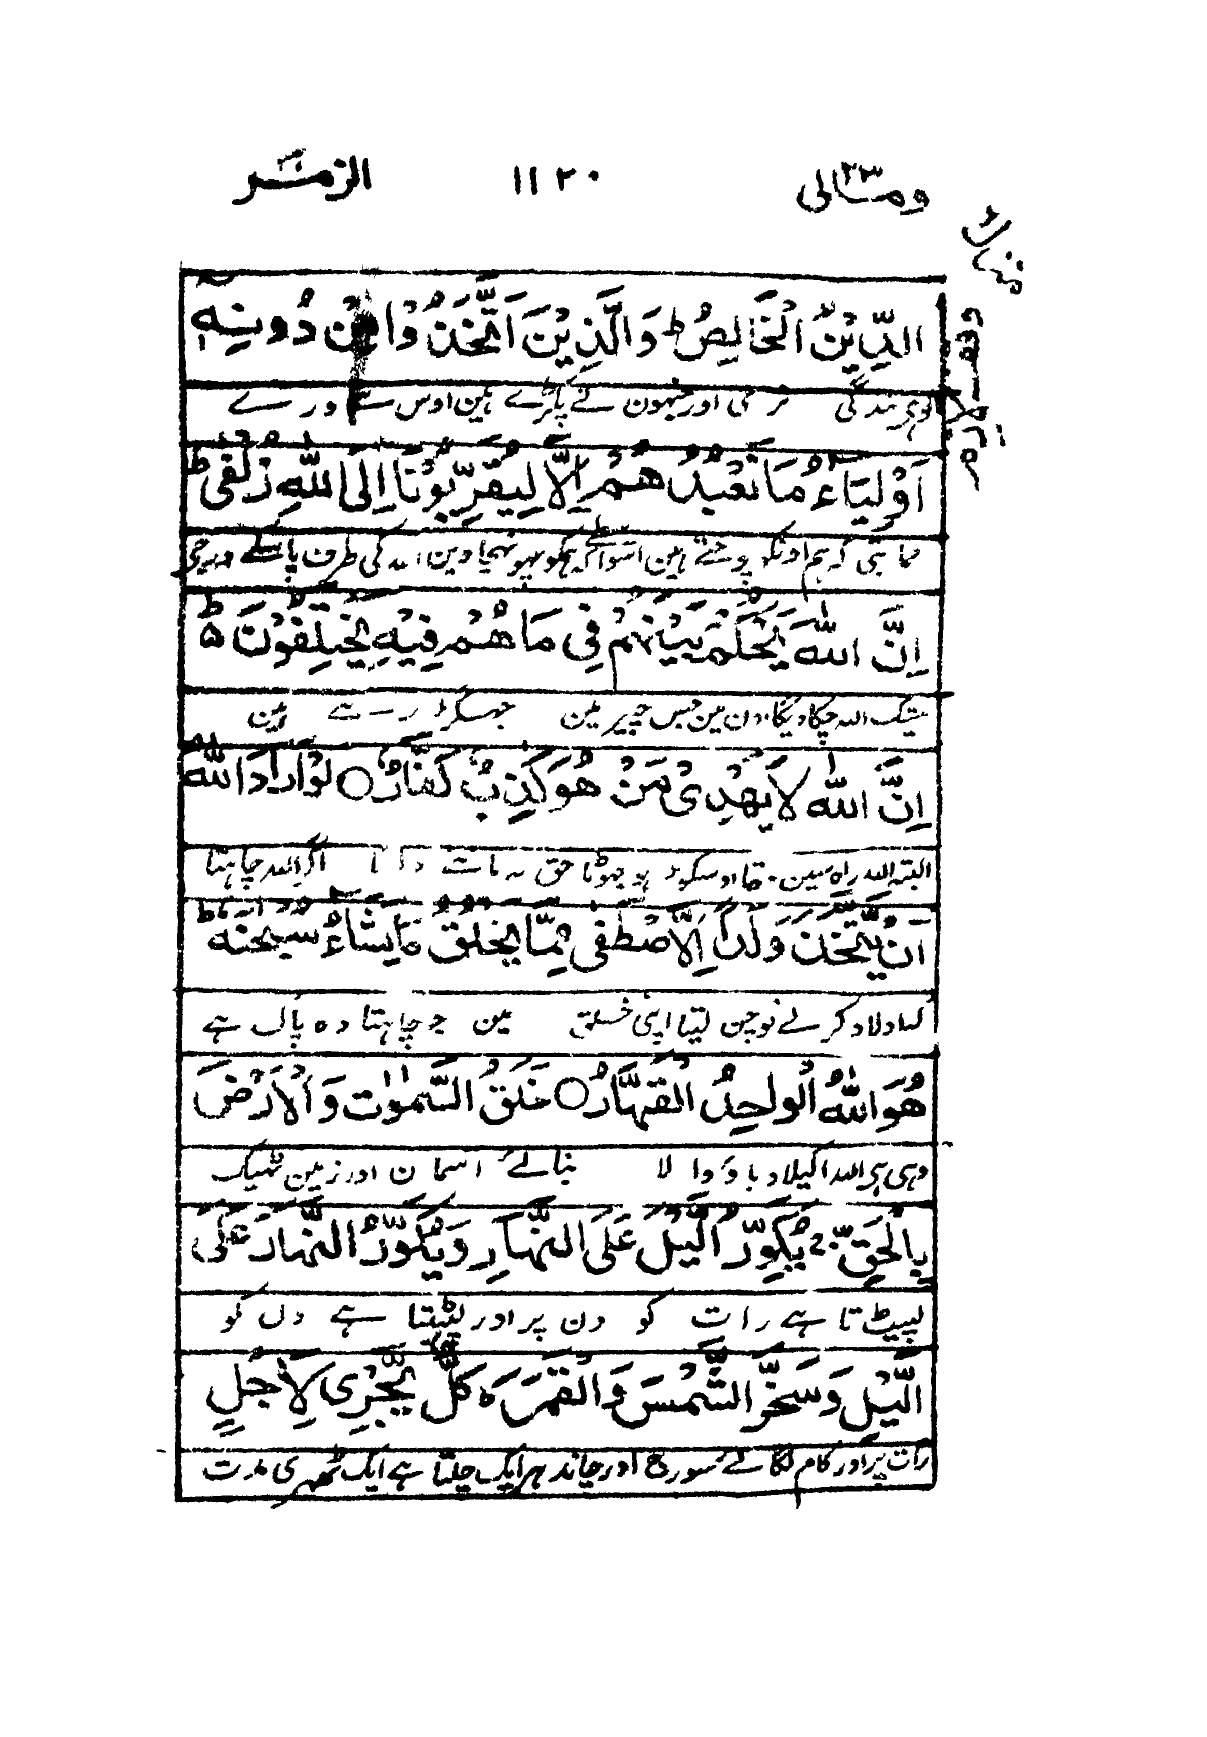 ومالی ٢٣
١١٢٠
الزمر
منزل ٦
الدِّيْنُ الْخَالِصُ ؕ وَالَّذِيْنَ اتَّخَذُوْا مِنْ دُوْنِهٖٓ
بندگی نری اور جنہون نے پکڑے ہین اوس سے ورے
اَوْلِيَآءَ ۘ مَا نَعْبُدُهُمْ اِلَّا لِيُقَرِّبُوْنَاۤ اِلَى اللّٰهِ زُلْفٰى ؕ
حمایتی کہ ہم اونکو پوجتے ہین اسواسطے کہ ہمکو پہونچاوین اللہ کی طرف پاس کے درجے
اِنَّ اللّٰهَ يَحْكُمُ بَيْنَهُمْ فِىْ مَا هُمْ فِيْهِ يَخْتَلِفُوْنَ ۬ؕ
بیشک اللہ چکا دیگا اون مین جس چیز مین جھگڑ رہے ہین
اِنَّ اللّٰهَ لَا يَهْدِىْ مَنْ هُوَ كٰذِبٌ كَفَّارٌ ○ لَوْ اَرَادَ اللّٰهُ
البتہ اللہ راہ نہین دیتا اوسکو جو ہو جھوٹا حق نہ ماننے والا اگر اللہ چاہتا
اَنْ يَّتَّخِذَ وَلَدًا لَّاصْطَفٰى مِمَّا يَخْلُقُ مَا يَشَآءُ ۙ سُبْحٰنَهٗ ؕ
کہ اولاد کر لے تو چن لیتا اپنی خلق مین جو چاہتا وہ پاک ہے
هُوَ اللّٰهُ الْوَاحِدُ الْقَهَّارُ ○ خَلَقَ السَّمٰوٰتِ وَالْاَرْضَ
وہی ہے اللہ اکیلا دباؤ والا بنائے آسمان اور زمین ٹھیک
بِالْحَقِّ ۚ يُكَوِّرُ الَّيْلَ عَلَى النَّهَارِ وَيُكَوِّرُ النَّهَارَ عَلَى
لپیٹتا ہے رات کو دن پر اور لپٹتا ہے دن کو
الَّيْلِ وَسَخَّرَ الشَّمْسَ وَالْقَمَرَ ؕ كُلٌّ يَّجْرِىْ لِاَجَلٍ
رات پر اور کام لگائے سورج اور چاند ہر ایک چلتا ہے ایک ٹھہری مدت